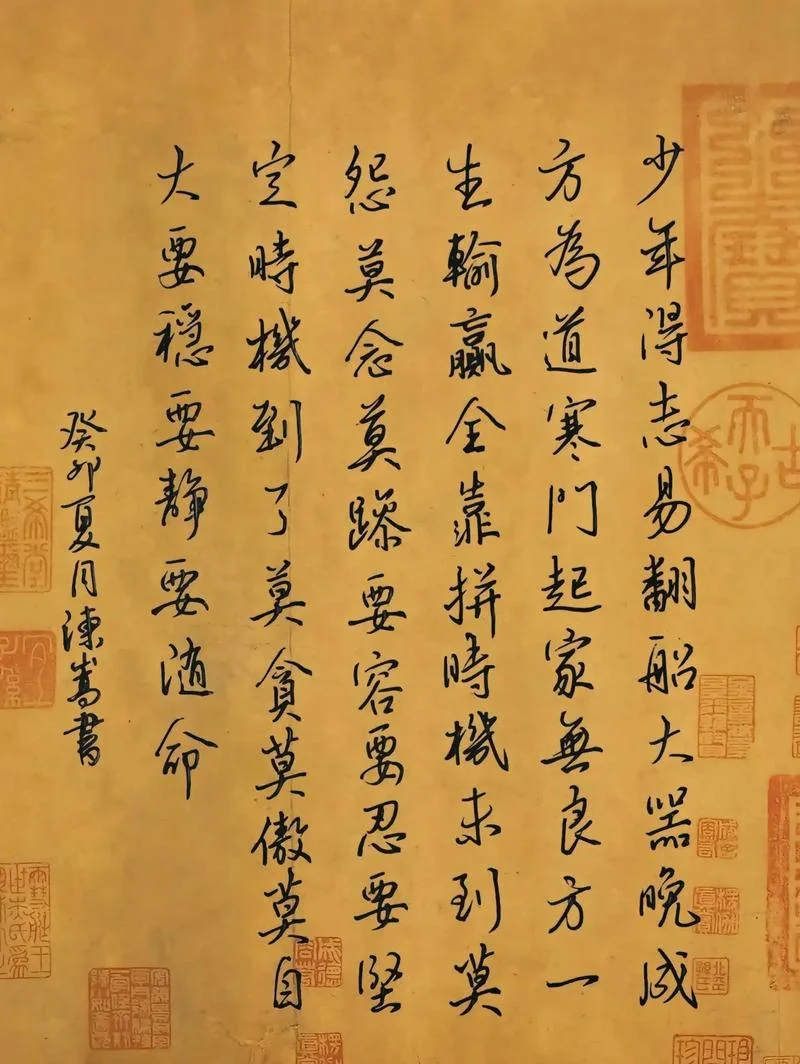 少年得志易翻船大器晚成
方為道寒門起家無良方一
生輸贏全靠拼時機未到莫
怨莫念莫躁要容要忍要堅
定時機到了莫貪莫傲莫自
大要穩要靜要随命
癸卯夏月陳嵩書
古希天子
三希堂